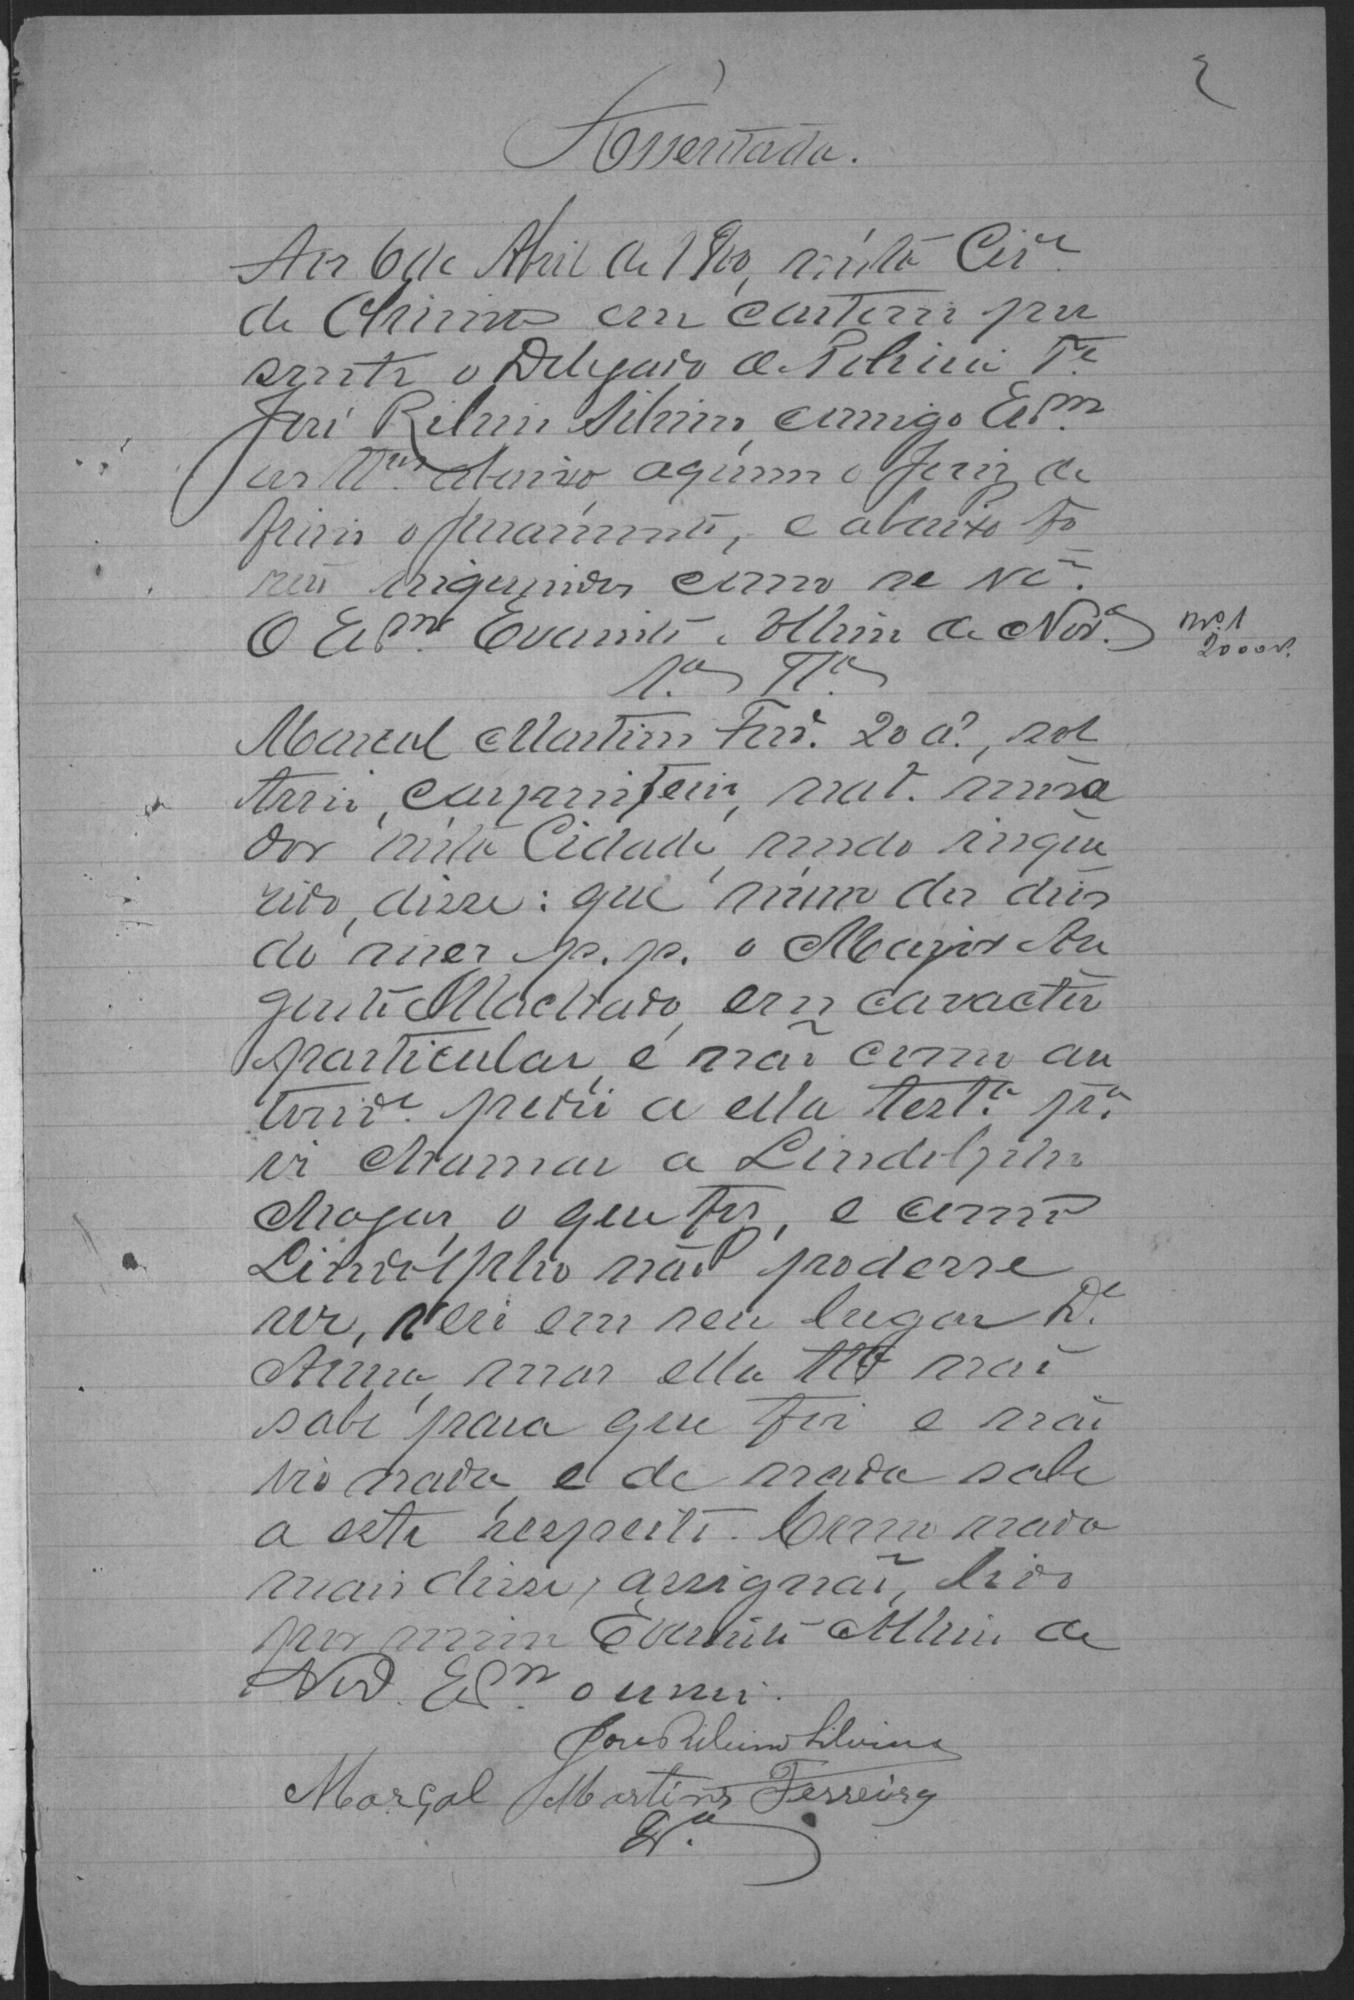 2
Assentada.
Aos 6 de Abril de 1900, nesta Cid.e
de Oliveira em cartorio pre
sente o Delegado de Policia T.e
José Ribeiro Silvino, comigo Es.m
as tt.as abaixo, aquem o Juiz de
feriu o juramento, e abaixo fo
rão inqueridos como se vê.
O Es.m Evaristo Alhim de Nov.a
1.a Tt.a
Marçal Martins Ferr.a 20 a.s, sol
teiro, carpinteiro, nat. mora
dor nesta Cidade, sendo inque
rido, disse: que num dos dias
do mez p. p. o Major Au
gusto Machado, em caracter
particular, e não como au
torid.e pediu a ella test.a p.a
ir chamar a Lindolpho
Chagas, o que fez, e como
Lindolpho não podesse
vir, veu em seu lugar D.a
Anna, mas ella tta não
sabe para que foi e não
vio nada, e de nada sabe
a este respeito. Como nada
mais disse, assignão, lido
por mim Evaristo Alhim de
Nov.a Es.m o escrevi.
José Ribeiro Silvino
Marçal Martins Ferreira
2.a